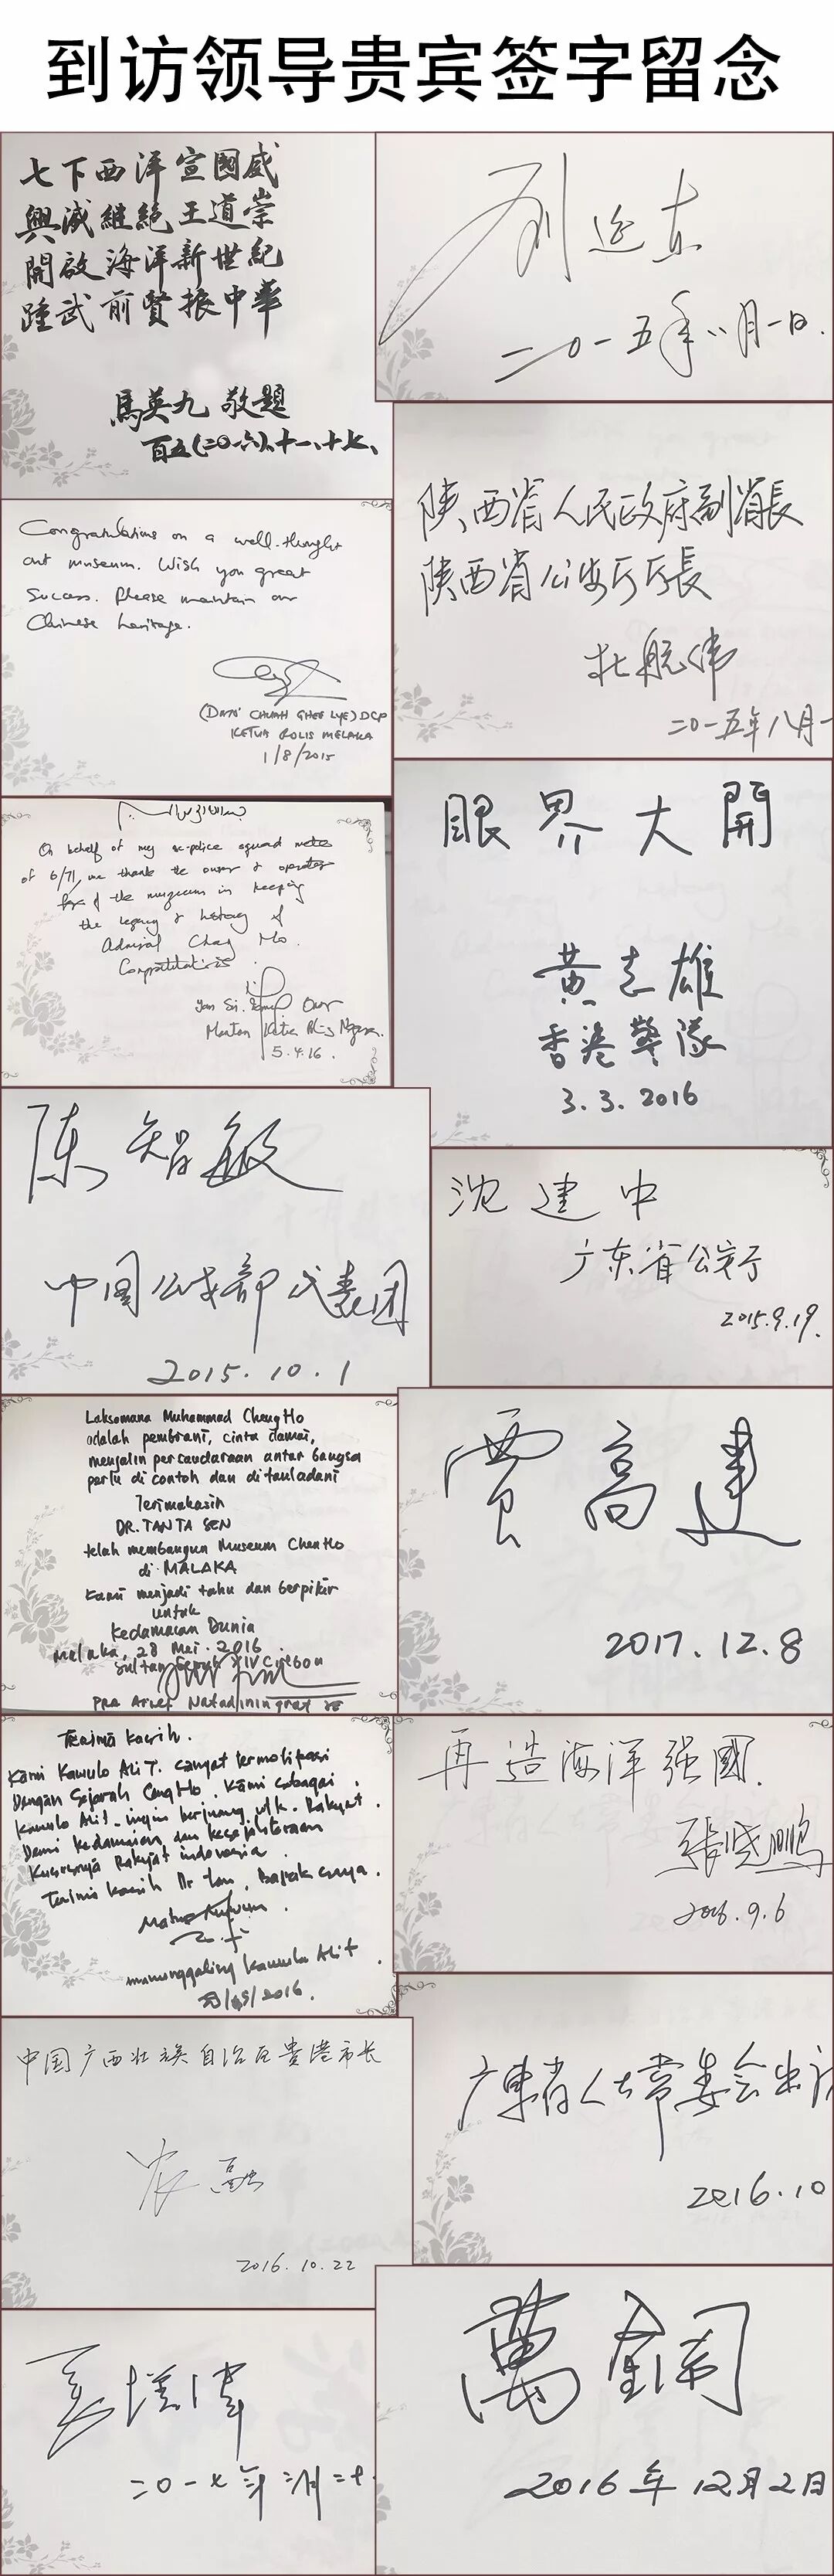 到访领导贵宾签字留念
七下西洋宣國威
興滅繼絕王道崇
開啟海洋新世紀
踵武前賢振中華
馬英九 敬題
百五(二〇一六)、十一、十七、
刘延东
二〇一五年八月一日.
Congratulations on a well-thought
out museum. Wish you great
Success. Please maintain our
Chinese heritage.
(DATO' CHUAH GHEE LYE) DCP
KETUA POLIS MELAKA
1/8/2015
陕西省人民政府副省長
陕西省公安厅厅長
杜航伟
二〇一五年八月一
On behalf of my ex-police squad mates
of 6/71, we thank the owner & operator
of the museum in keeping
the legacy & history of
Admiral Cheng Ho.
Congratulations
Mantan Ketua Polis Negara.
5.4.16.
眼界大開
黄志雄
香港警隊
3.3.2016
陈智敏
中国公安部代表团
2015.10.1
沈建中
广东省公安厅
2015.9.19.
Laksamana Muhammad ChengHo
adalah pemberani, cinta damai,
menjalin persaudaraan antar bangsa
perlu di contoh dan di tauladani
Terimakasih
DR. TAN TA SEN
telah membangun Museum ChenHo
di MALAKA
Kami menjadi tahu dan berpikir
untuk
Kedamaian Dunia
Melaka, 28 Mei. 2016
Sultan Sepuh XIV Cirebon
PRA Arief Natadiningrat SE
賈高建
2017.12.8
Terima kasih.
Kami Kawulo Alit. sangat termotipasi
Dengan Sejarah CengHo. Kami sebagai
Kawulo Alit. ingin berjuang utk. Rakyat.
Demi Kedamaian dan kesejahteraan
Khususnya Rakyat indonesia.
Terima kasih Dr Tan,
manunggaling Kawulo Alit
/2016.
再造海洋强國.
張曉鹏
2016.9.6
中国广西壮族自治区贵港市长
农融
2016.10.22
广東省人大常委会
2016.10
夏宝龙
二〇一七年
萬鋼
2016年12月2日